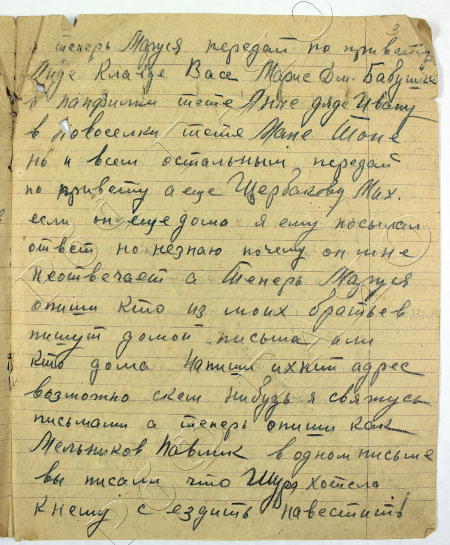 3
и теперь Маруся передай по привету
Лиде Клавде Васе Марие Дм. Бабушке
в панфилки тете Анне дяде Ивану
в новоселки тетя Мане Тоне
но и всем остальным передай
по привету а еще Щербакову Мих.
если он еще дома я ему посылал
ответ но незнаю почему он мне
неотвечает а теперь Маруся
опиши кто из моих братьев
пишут домой письма, или
кто дома напиши ихний адрес
возможно скем нибудь я свяжусь
письмами а теперь опиши как
Мельников Павлик в одном письме
вы писали что Шура хотела
к нему с ездить навестить